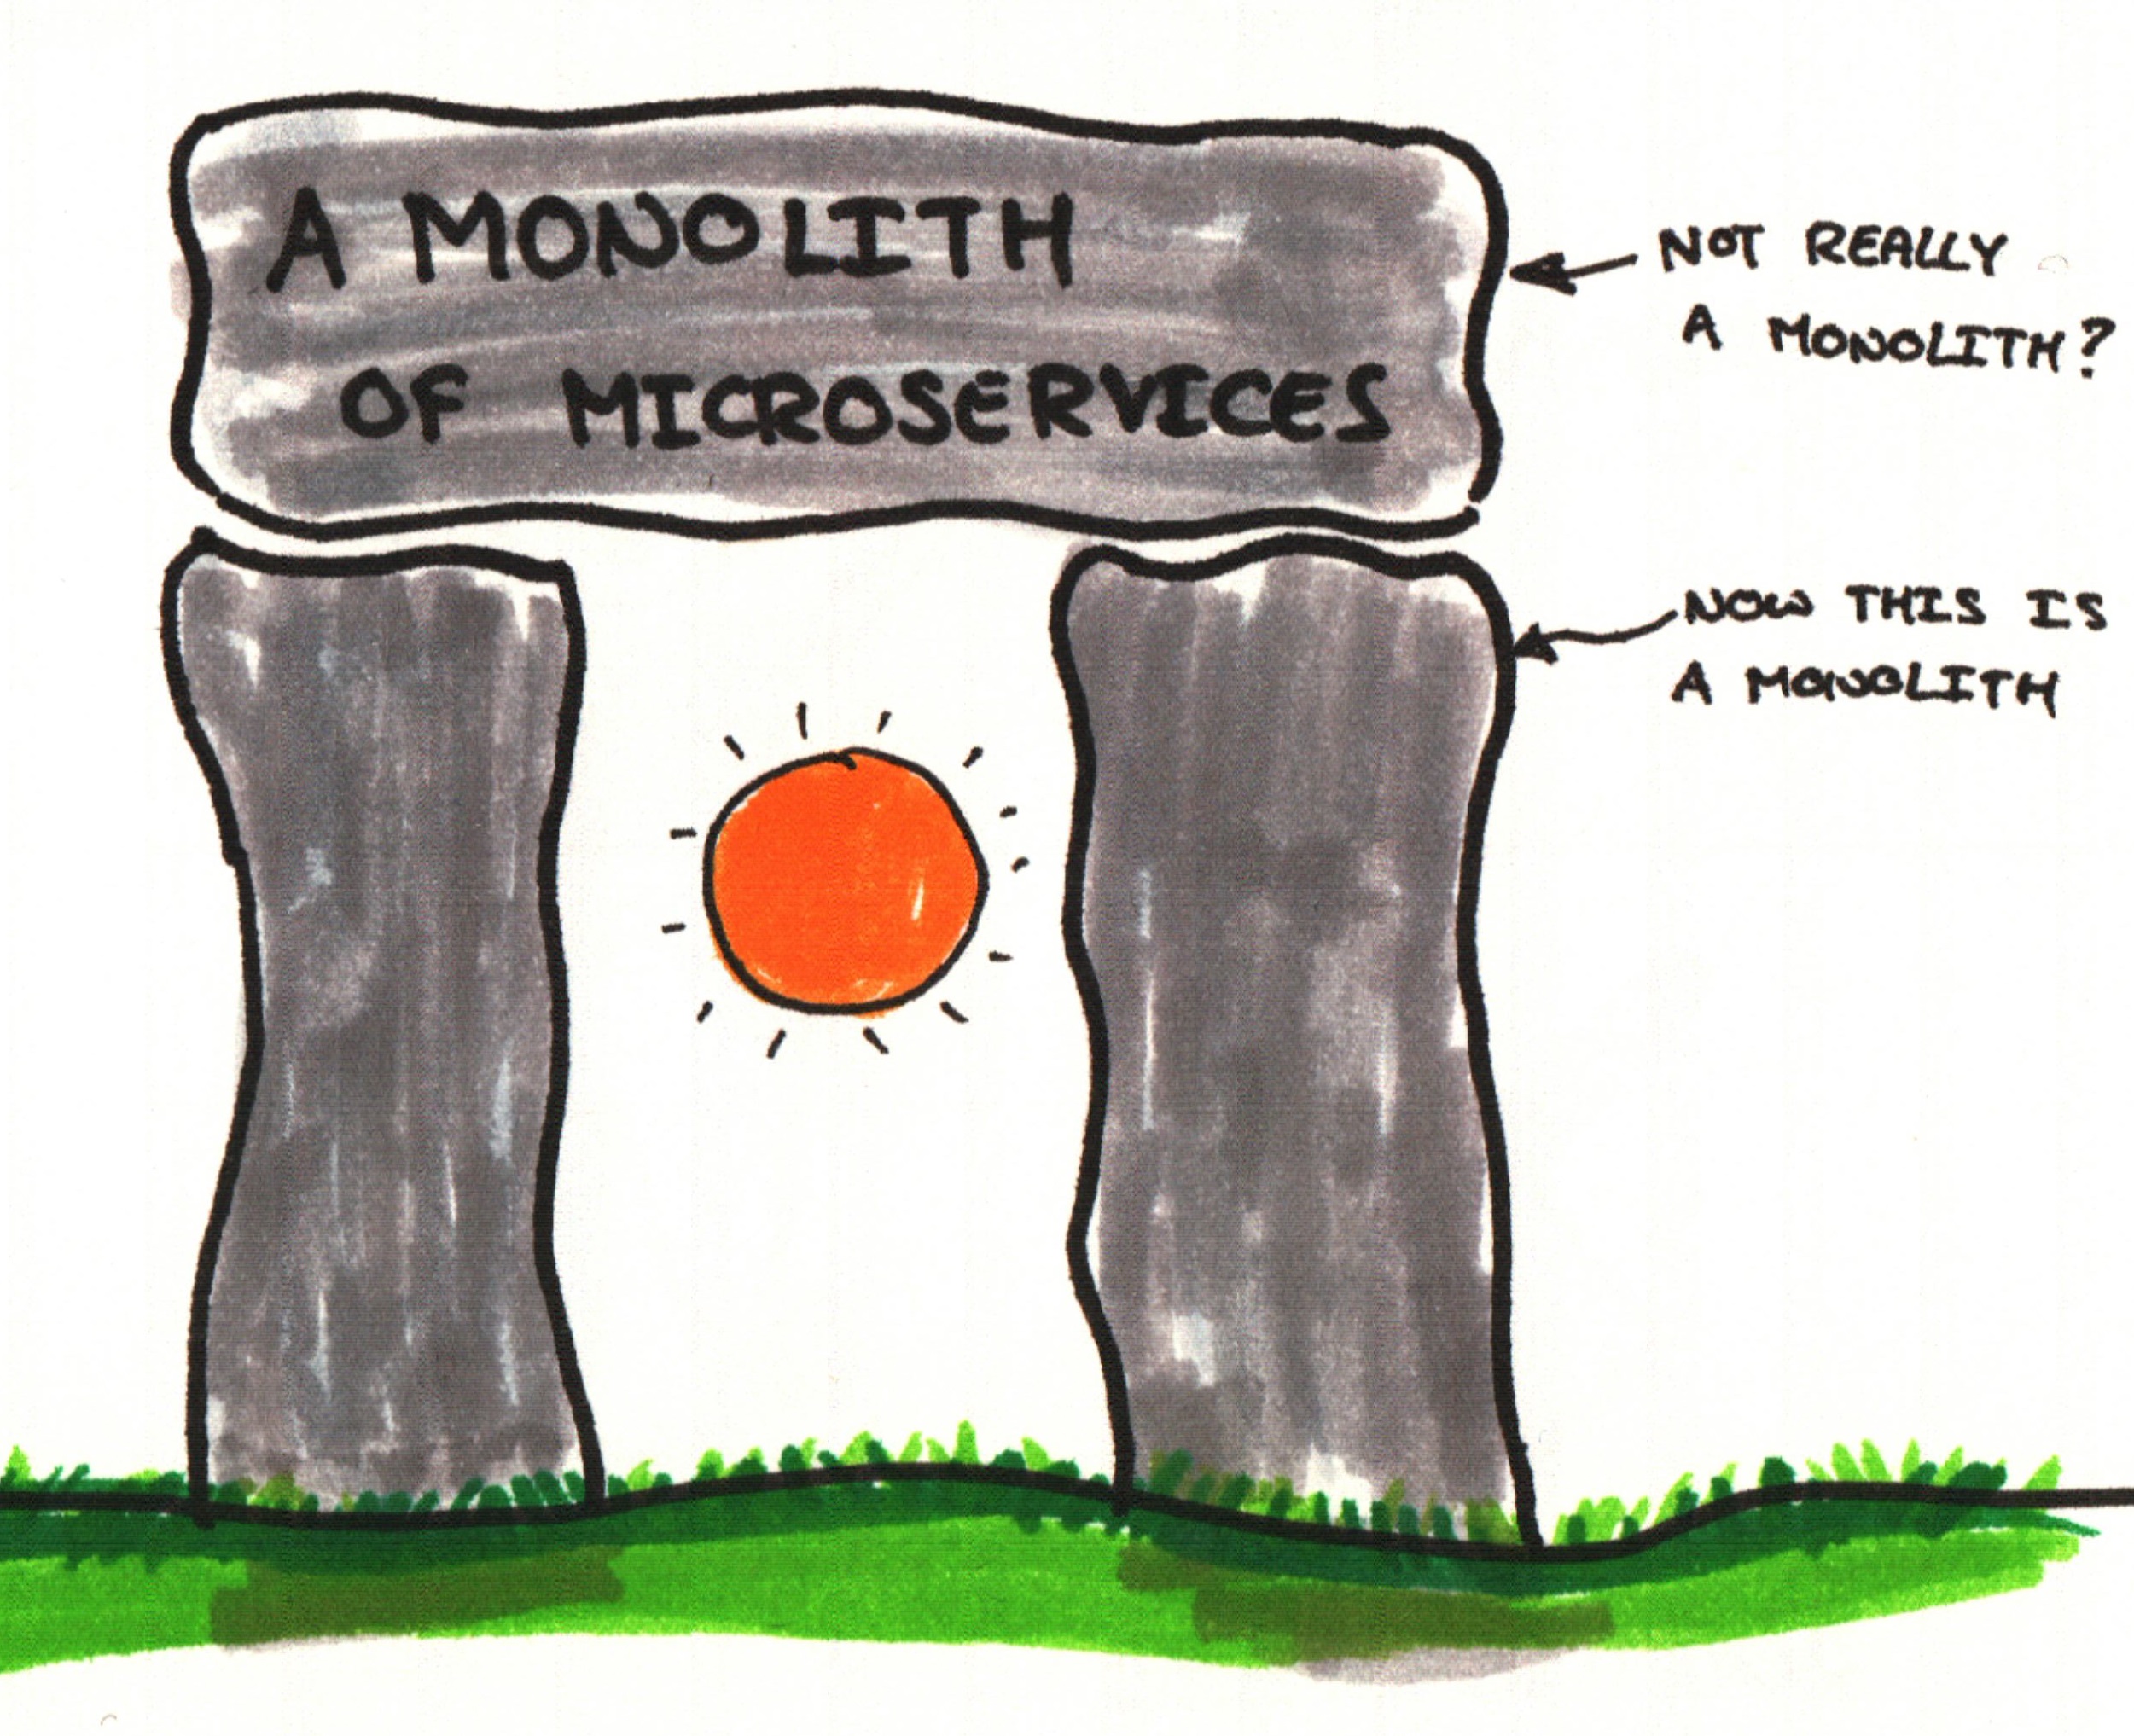 A MONOLITH
OF MICROSERVICES
NOT REALLY
A MONOLITH?
NOW THIS IS
A MONOLITH